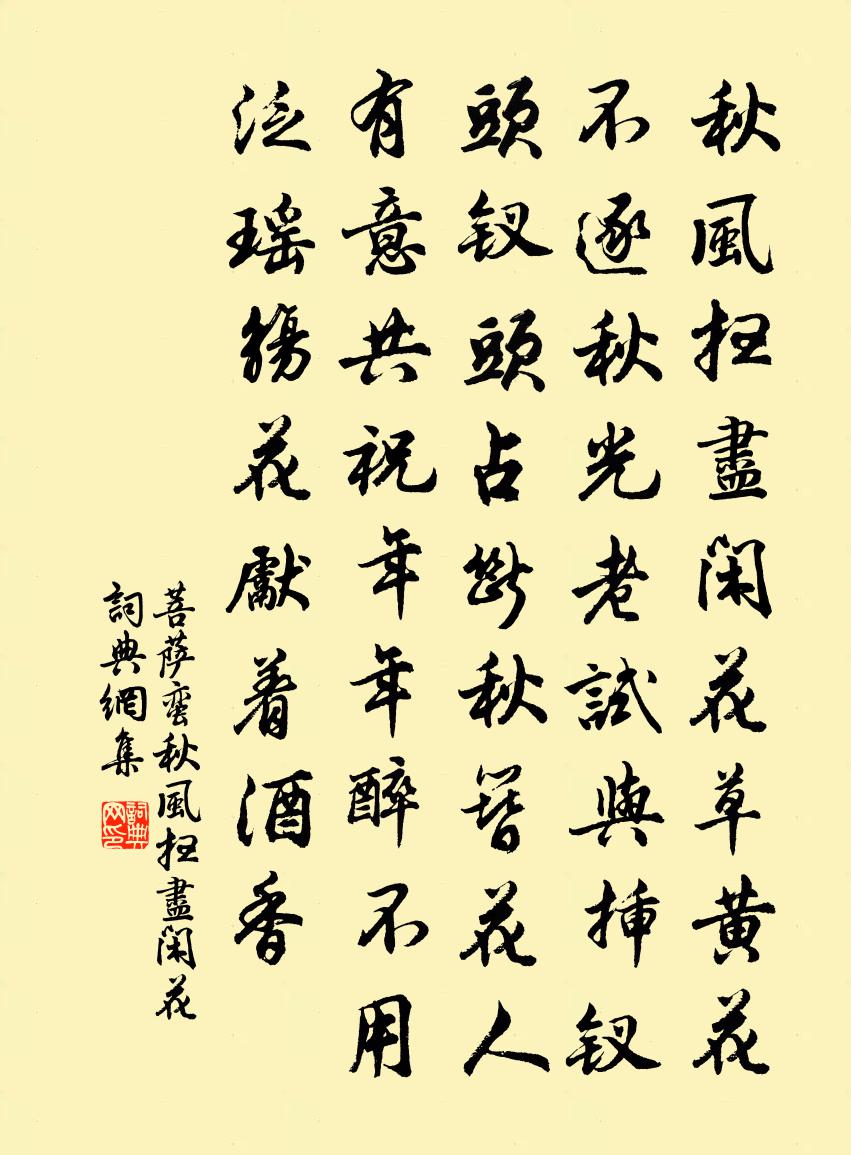 秋風掃盡閑花草黄花
不逐秋光老試與揷釵
頭釵頭占斷秋簪花人
有意共祝年年醉不用
泛瑤觴花獻着酒香
菩萨蛮秋風掃盡閑花
詞典網集
詞典网印